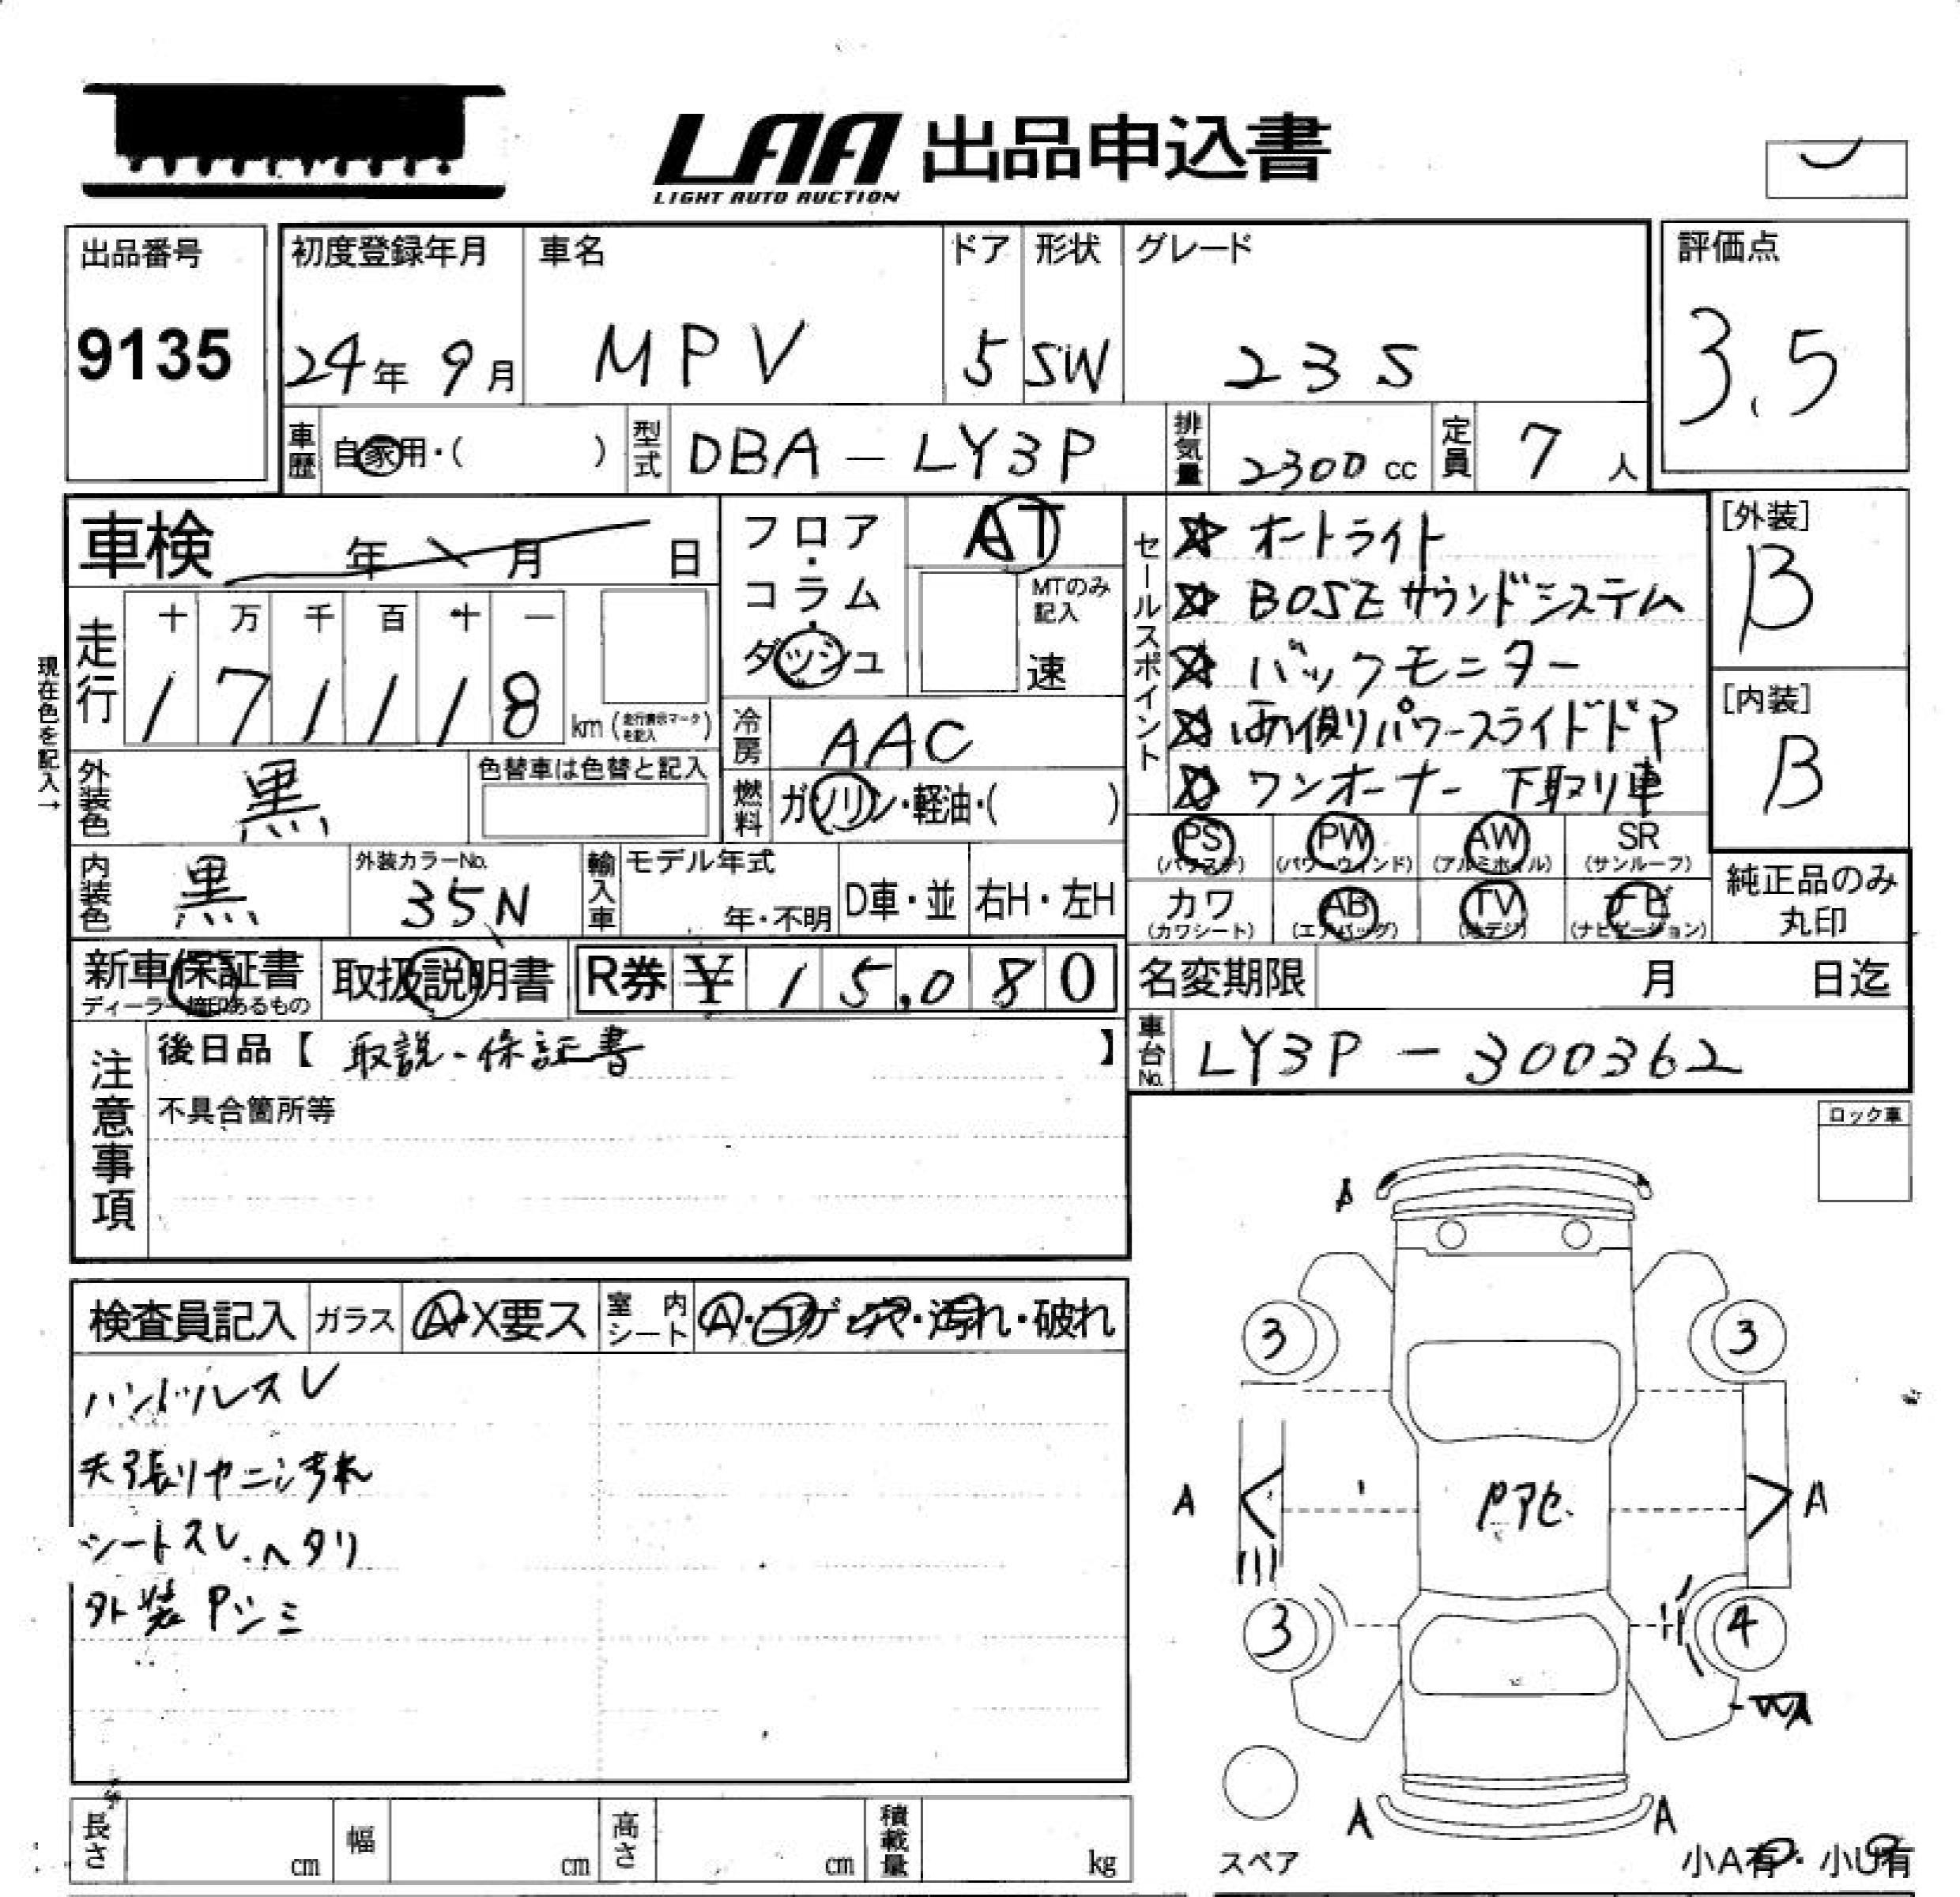 LAA 出品申込書
LIGHT AUTO AUCTION
出品番号
9135
初度登録年月
24年 9月
車名
MPV
ドア
5
形状
SW
グレード
23S
評価点
3.5
車歴 自家用・( )
型式 DBA-LY3P
排気量 2300cc
定員 7人
車検 年 月 日
フロア・コラム・ダッシュ
AT
MTのみ記入
速
セールスポイント
オートライト
BOSEサウンドシステム
バックモニター
両側パワースライドドア
ワンオーナー 下取り車
[外装]
B
[内装]
B
現在色を記入→
走行
十 万 千 百 十 一
1 7 1 1 1 8
km(走行表示マークを記入)
冷房 AAC
燃料 ガソリン・軽油・( )
外装色 黒
色替車は色替と記入
内装色 黒
外装カラーNo.
35N
輸入車 モデル年式
年・不明
D車・並
右H・左H
PS (パワステ)
PW (パワーウィンド)
AW (アルミホイル)
SR (サンルーフ)
カワ (カワシート)
AB (エアバッグ)
TV (地デジ)
ナビ (ナビゲーション)
純正品のみ丸印
新車保証書
ディーラー捺印あるもの
取扱説明書
R券 ¥ 15,080
名変期限 月 日迄
車台No. LY3P-300362
注意事項
後日品【 取説・保証書 】
不具合箇所等
ロック車
検査員記入
ガラス A・X要ス
室内シート A・コゲ・穴・汚れ・破れ
ハンドルスレ
天張りヤニシ汚れ
シートスレ.ヘタリ
外装Pシミ
A
3
3
A
Pアセ.
A
3
4
A
A
スペア
小A有・小U有
長さ cm
幅 cm
高さ cm
積載量 kg